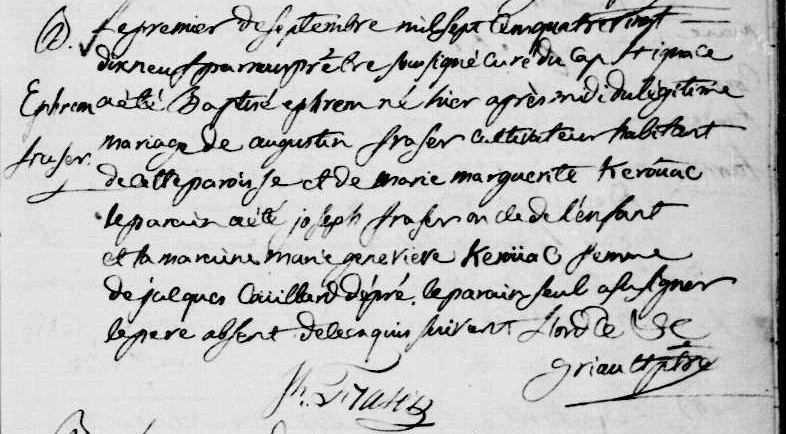 B. Le premier de septembre mil sept cent quatre vingt
dix neuf par nous prêtre soussigné curé du Cap St ignace
Ephrem a été Baptisé ephrem né hier après midi du légitime
fraser. mariage de augustin fraser cultivateur habitant
de cette paroisse et de marie marguerite Keroüac
le parain a été joseph fraser oncle de l'enfant
et la maraine marie genevieve Keroüac femme
de jacques Couillard dépré. le parain seul a su signer
le pere absent de le ce qui suivent
ptre
Jh. Fraser